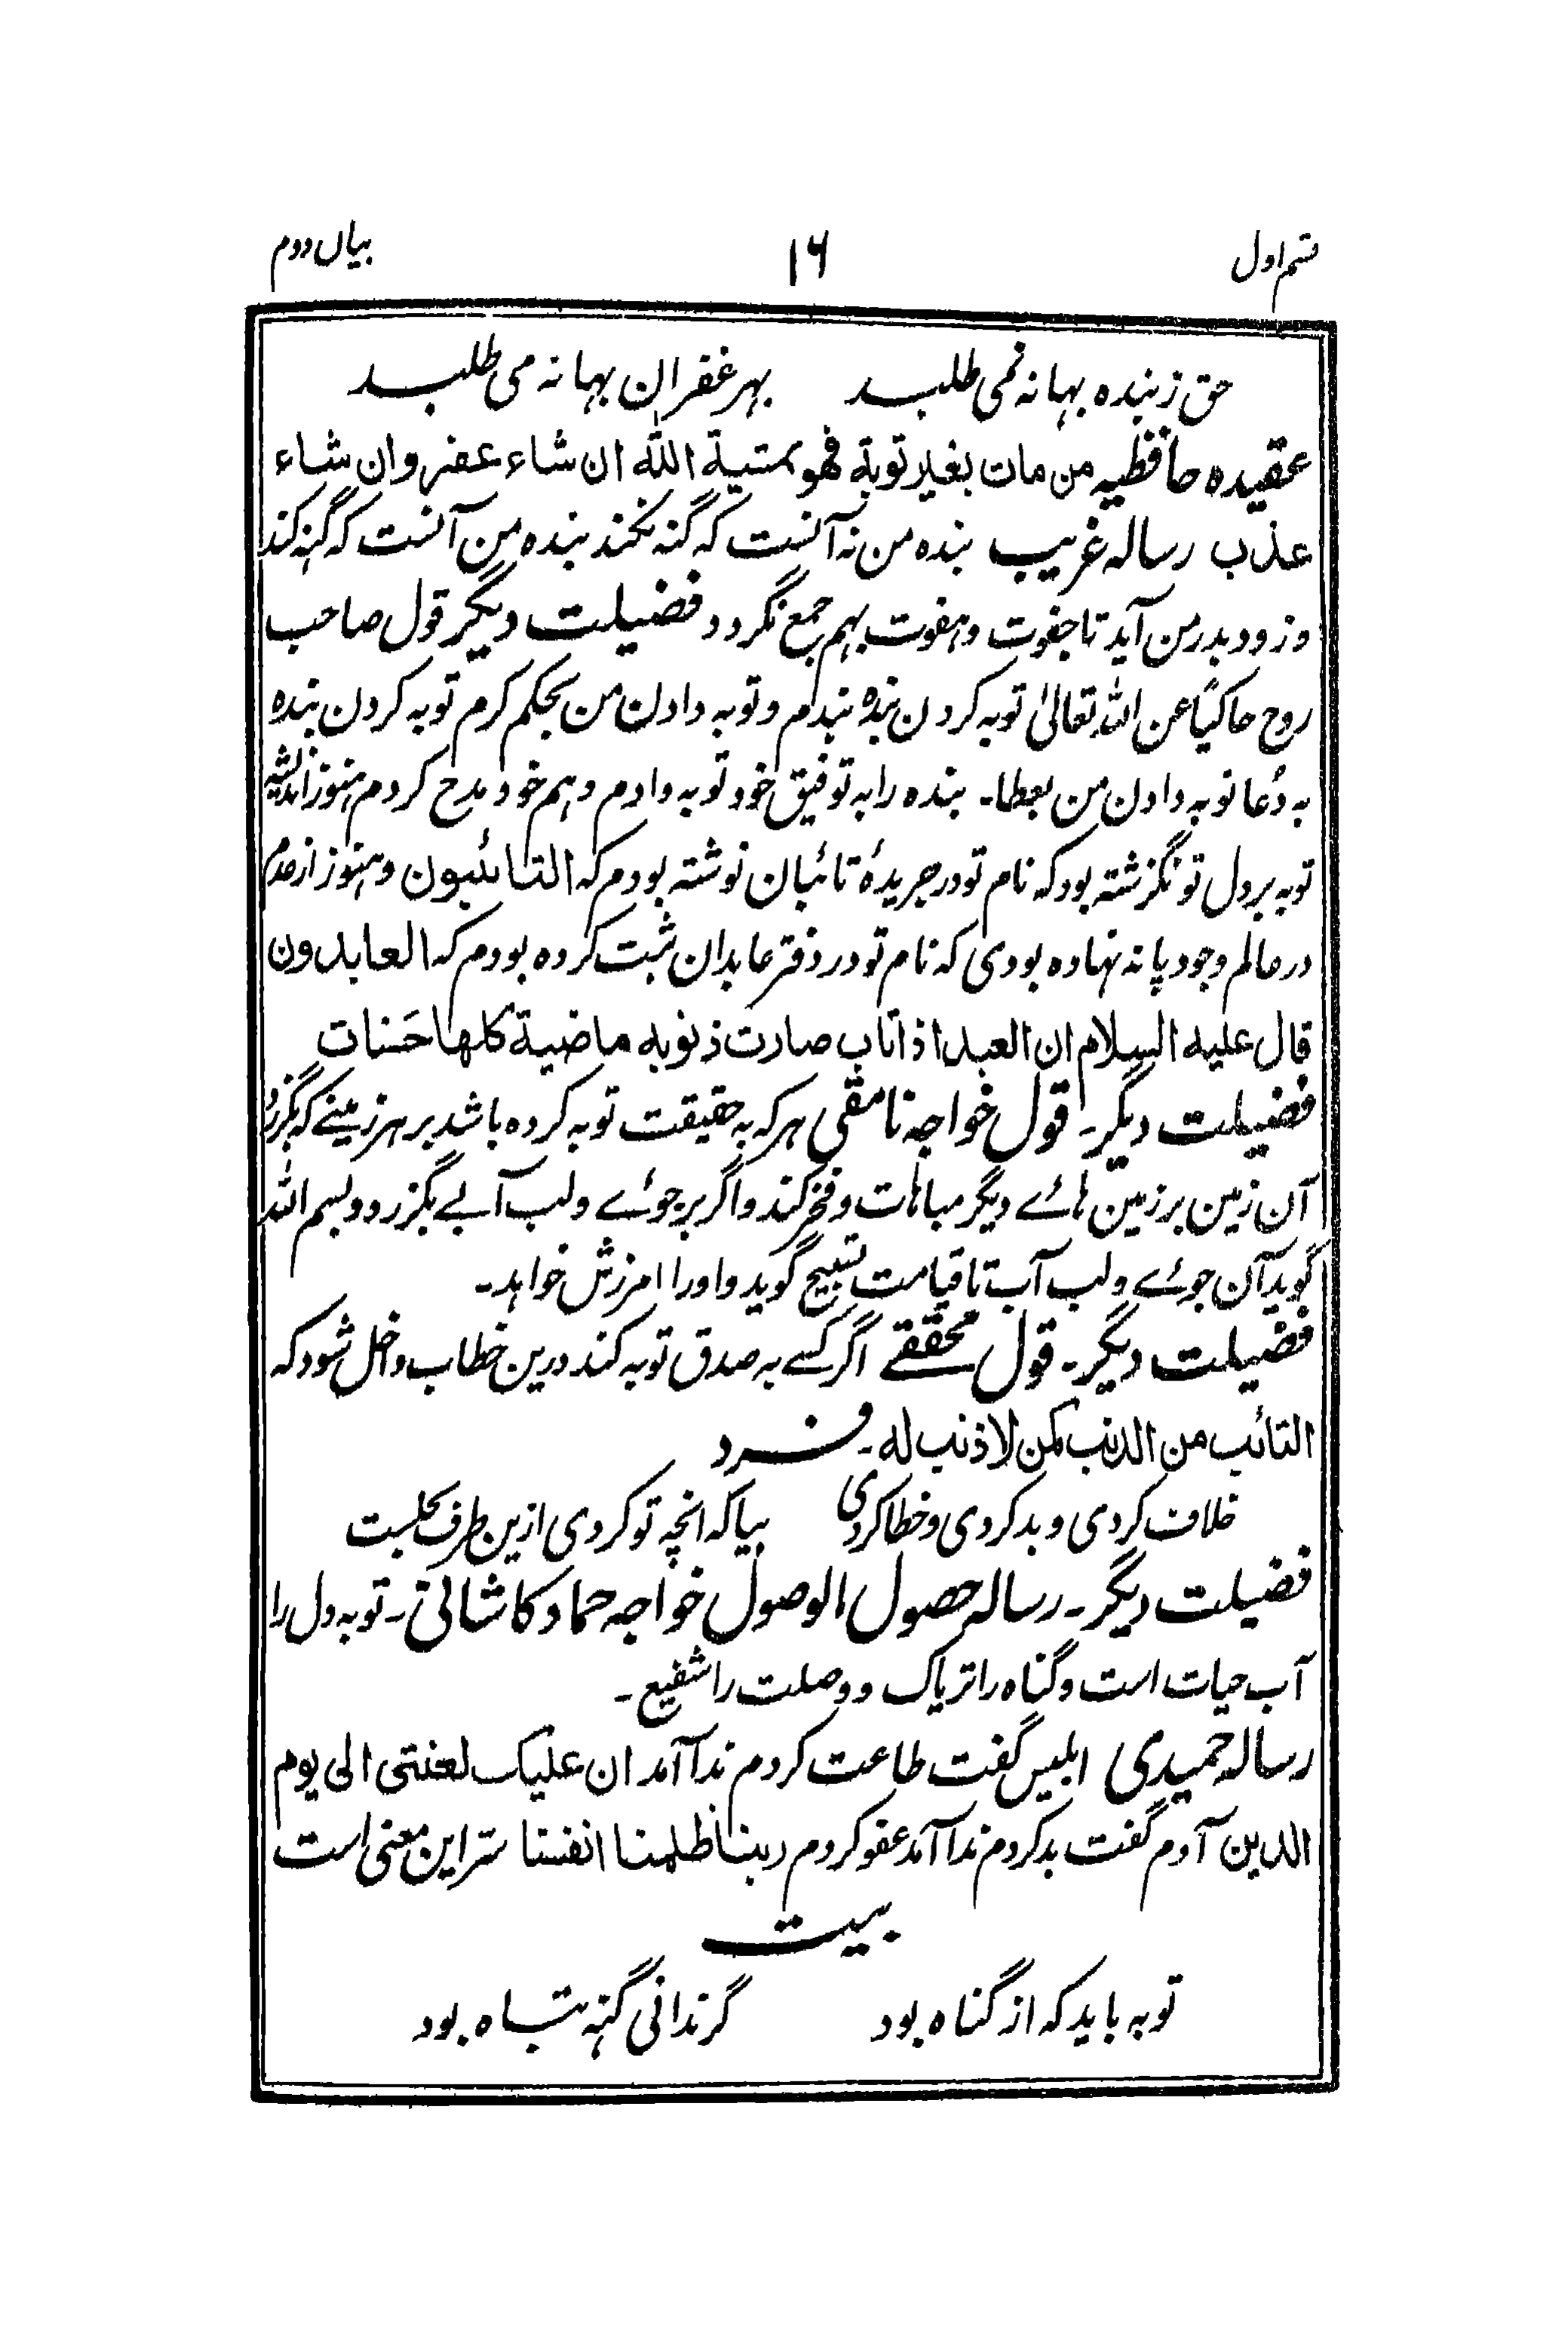 قسم اول
۱۶
بیاں دوم
حق ز بنده بها نه نمی طلبد بهر غفران بهانه می طلبد
عقیده حافظیه من مات بغیر توبة فهو بمشیة الله ان شاء غفر وان شاء
عذب رساله غریب بنده من نه آنست که گنه نکند بنده من آنست که گنه کند
و زود بدر من آید تا جفوت و هفوت بهم جمع نگردد فضیلت دیگر قول صاحب
روح حاکیًا عن الله تعالیٰ توبه کردن بنده بندم و توبه دادن من بحکم کرم توبه کردن بنده
به دُعا توبه دادن من بعطا۔ بنده را به توفیق خود توبه دادم و هم خود مدح کردم هنوز اندیشه
توبه بر دل تو نگزشته بود که نام تو در جریدۀ تائبان نوشته بودم که التائبون و هنوز از عدم
در عالم وجود پا نه نهاده بودی که نام تو در دفتر عابدان ثبت کرده بودم که العابدون
قال علیه السلام ان العبد اذا تاب صارت ذنوبه ماضیة کلها حَسنات
فضیلت دیگر۔ قول خواجه نامقی هر که به حقیقت توبه کرده باشد بر هر زمینے که بگزرد
آن زمین بر زمین هائے دیگر مباهات و فخر کند و اگر بر جوئے و لب آبے بگزرد و بسم الله
گوید آن جوئے و لب آب تا قیامت تسبیح گوید و او را امرزش خواهد۔
فضیلت دیگر۔ قول محققے اگر کسے به صدق توبه کند درین خطاب داخل شود که
التائب من الذنب کمن لا ذنب له۔ فرد
خلاف کردی و بد کردی و خطا کردی بیا که انچه تو کردی ازین طرف بحلست
فضیلت دیگر۔ رساله حصول الوصول خواجه حماد کاشانی۔ توبه دل را
آب حیات است و گناه را تریاک و وصلت را شفیع۔
رساله حمیدی ابلیس گفت طاعت کردم ندا آمد ان علیک لعنتی الی یوم
الدین آدم گفت بد کردم ندا آمد عفو کردم ربنا ظلمنا انفسنا سّر این معنی است
بیت
توبه باید که از گناه بود گر ندانی گنه تباه بود